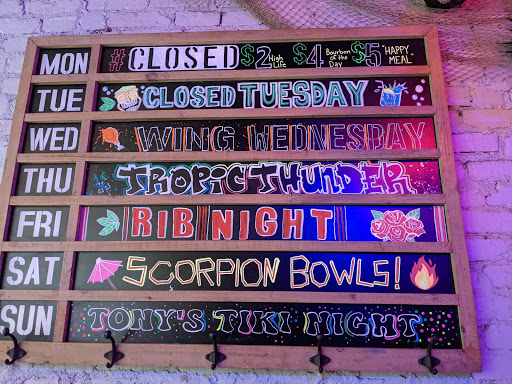 MON #CLOSED $2 High Life $4 Bourbon of the Day $5 "HAPPY MEAL"
TUE CLOSED TUESDAY
WED WING WEDNESDAY
THU TROPIC THUNDER
FRI RIB NIGHT
SAT SCORPION BOWLS!
SUN TONY'S TIKI NIGHT